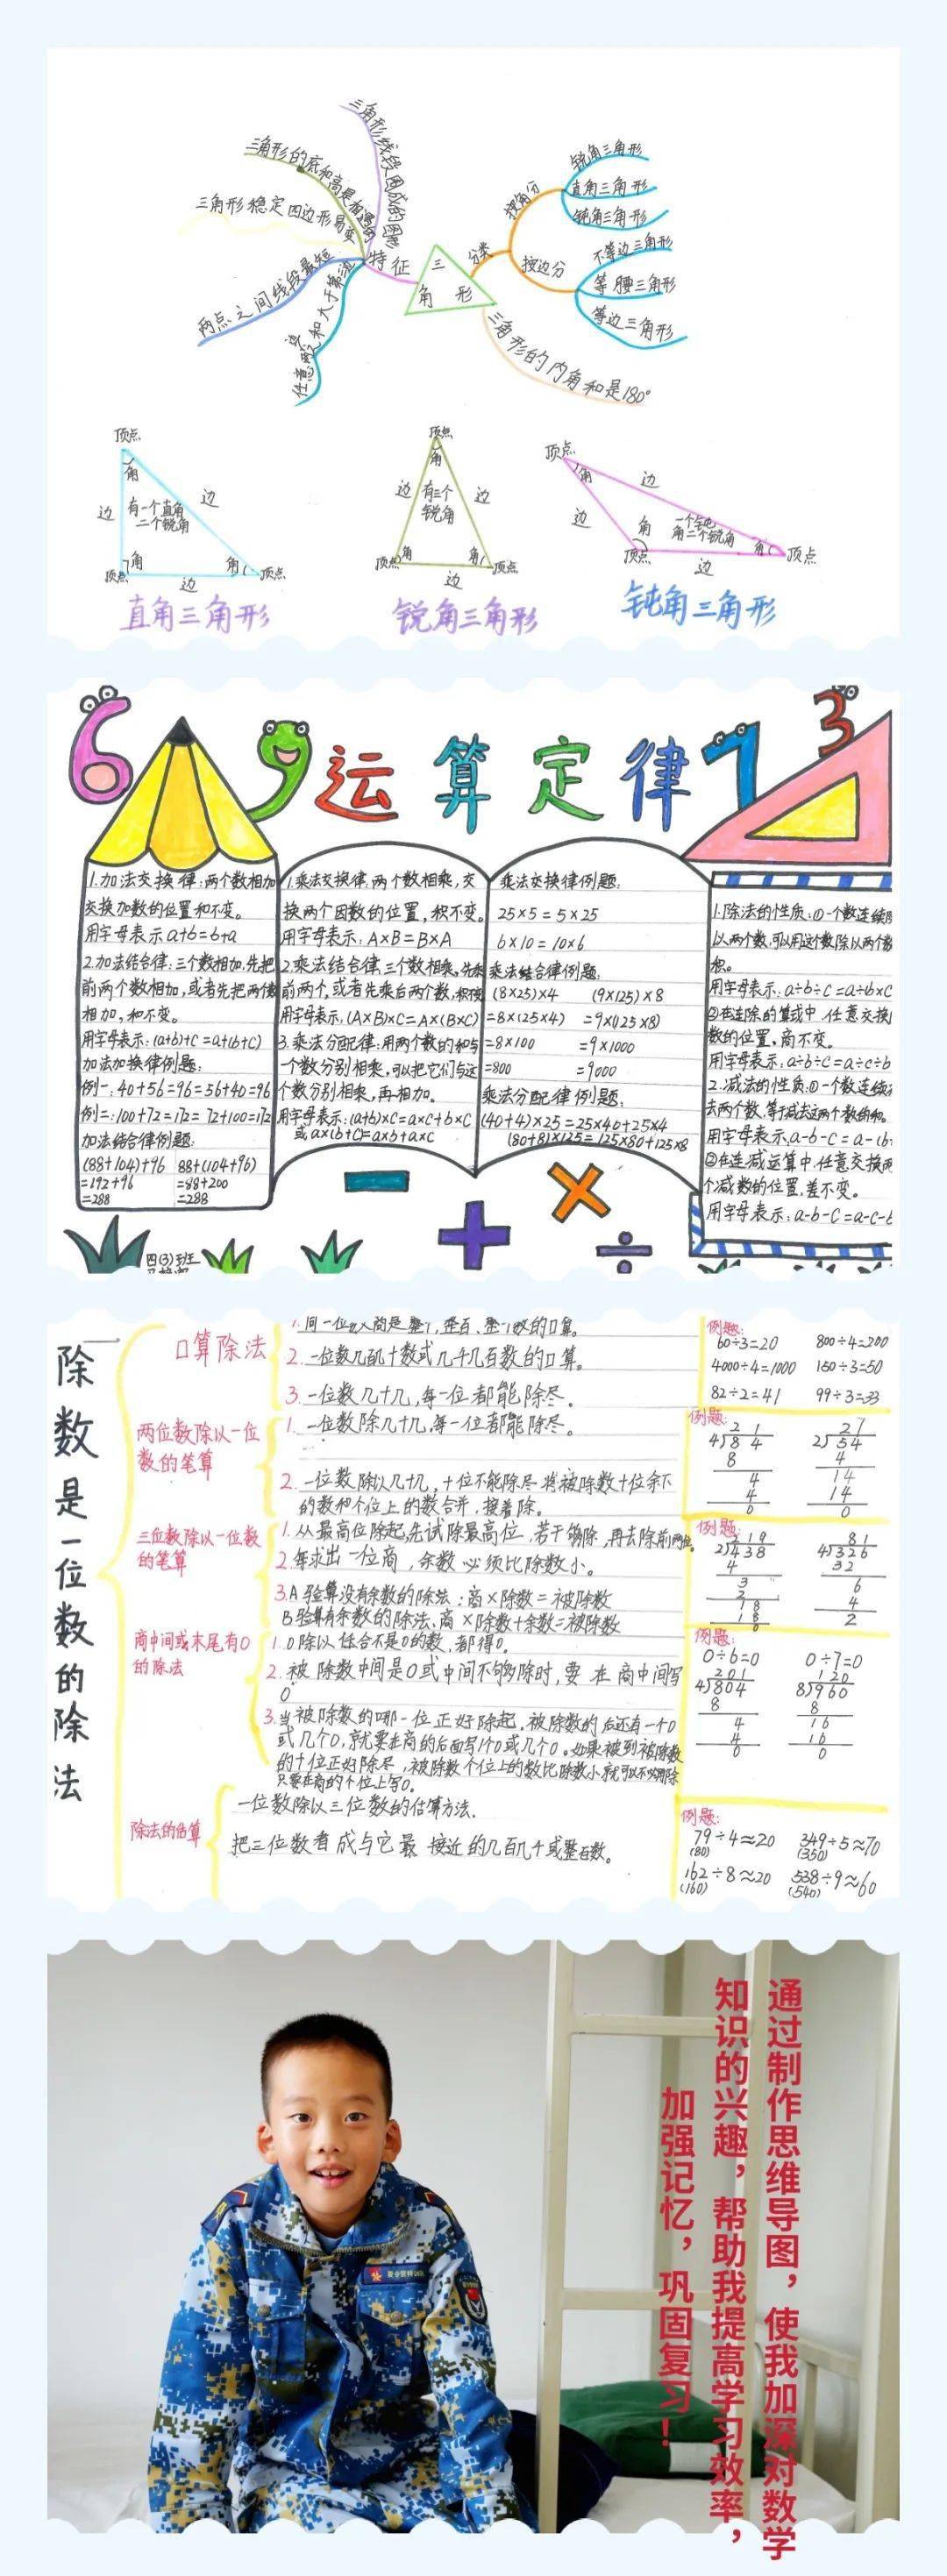 三角形
特征
三角形线段围成的图形
三角形的底和高是相遇的
三角形稳定四边形易变
两点之间线段最短
分类
按角分
锐角三角形
直角三角形
钝角三角形
按边分
不等边三角形
等腰三角形
等边三角形
三角形的内角和是180°
顶点
角
边
有一个直角
二个锐角
边
角
角
顶点
边
顶点
直角三角形
顶点
角
边
有三个
锐角
边
角
角
顶点
边
顶点
锐角三角形
顶点
角
边
边
角
一个钝
角二个锐角
角
顶点
边
顶点
钝角三角形
6 9 运算定律 7 3
1.加法交换律:两个数相加
交换加数的位置和不变。
用字母表示a+b=b+a
2.加法结合律:三个数相加,先把
前两个数相加,或者先把两个数
相加,和不变。
用字母表示:(a+b)+C=a+(b+C)
加法加换律例题:
例一:40+56=96=56+40=96
例二:100+72=172=72+100=172
加法结合律例题:
(88+104)+96 88+(104+96)
=192+96 =88+200
=288 =288
1.乘法交换律,两个数相乘,交
换两个因数的位置,积不变。
用字母表示:A×B=B×A
2.乘法结合律,三个数相乘,先乘
前两个,或者先乘后两个数,积不变
用字母表示,(A×B)×C=A×(B×C)
3.乘法分配律:用两个数的和与
一个数分别相乘,可以把它们与这
个数分别相乘,再相加。
用字母表示:(a+b)×C=a×c+b×C
或a×(b+C)=a×b+a×C
乘法交换律例题:
25×5=5×25
6×10=10×6
乘法结合律例题:
(8×25)×4 (9×125)×8
=8×(25×4) =9×(125×8)
=8×100 =9×1000
=800 =9000
乘法分配律例题:
(40+4)×25=25×40+25×4
(80+8)×125=125×80+125×8
1.除法的性质:①一个数连续
以两个数,可以用这个数除以两个数
积。
用字母表示:a÷b÷c=a÷b×c
②在连除的算式中,任意交换
数的位置,商不变。
用字母表示:a÷b÷c=a÷c÷b
2.减法的性质:①一个数连续
去两个数,等于减去这两个数的和。
用字母表示,a-b-c=a-(b
②在连减运算中,任意交换两
个减数的位置,差不变。
用字母表示:a-b-c=a-c-b
四(3)班
除数是一位数的除法
口算除法
2.一位数几百几十数或几千几百数的口算。
3.一位数几十几,每一位都能除尽。
例题:
60÷3=20 800÷4=200
4000÷4=1000 150÷3=50
82÷2=41 99÷3=33
两位数除以一位
数的笔算
1.一位数除几十几,每一位都能除尽。
2.一位数除以几十几,十位不能除尽,将被除数十位余下
的数和个位上的数合并,接着除。
例题:
21 27
4)84 2)54
8 4
4 14
4 14
0 0
三位数除以一位数
的笔算
1.从最高位除起,先试除最高位,若干够除,再去除前两位。
2.每求出一位商,余数必须比除数小。
3.A验算没有余数的除法:商×除数=被除数
B验算有余数的除法,商×除数+余数=被除数
例题:
219 81
2)438 4)326
4 32
3 6
2 4
18 2
18
0
商中间或末尾有0
的除法
1.0除以任合不是0的数,都得0。
2.被除数中间是0或中间不够除时,要在商中间写
0
3.当被除数的哪一位正好除起,被除数的后还有一个0
或几个0,就要在商的后面写1个0或几个0。如果被到被除数
的十位正好除尽,被除数个位上的数比除数小,就可以不必再除
只要在商的个位上写0。
例题:
0÷6=0 0÷7=0
201 120
4)804 8)960
8 8
4 16
4 16
0 0
除法的估算
一位数除以三位数的估算方法.
把三位数看成与它最接近的几百几十或整百数。
例题:
79÷4≈20 349÷5≈70
(80) (350)
162÷8≈20 538÷9≈60
(160) (540)
通过制作思维导图,使我加深对数学
知识的兴趣,帮助我提高学习效率,
加强记忆,巩固复习!